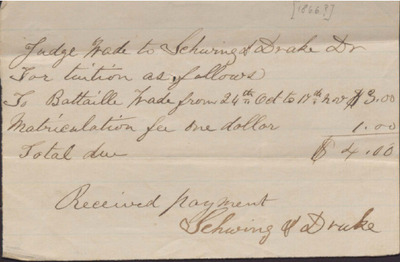 [1866?]
Judge Wade to Schwing & Drake Dr
For tuition as follows
To Battaille Wade from 24th Oct to 17th Nov $3.00
Matriculation fee one dollar 1.00
Total due $4.00
Received payment
Schwing & Drake